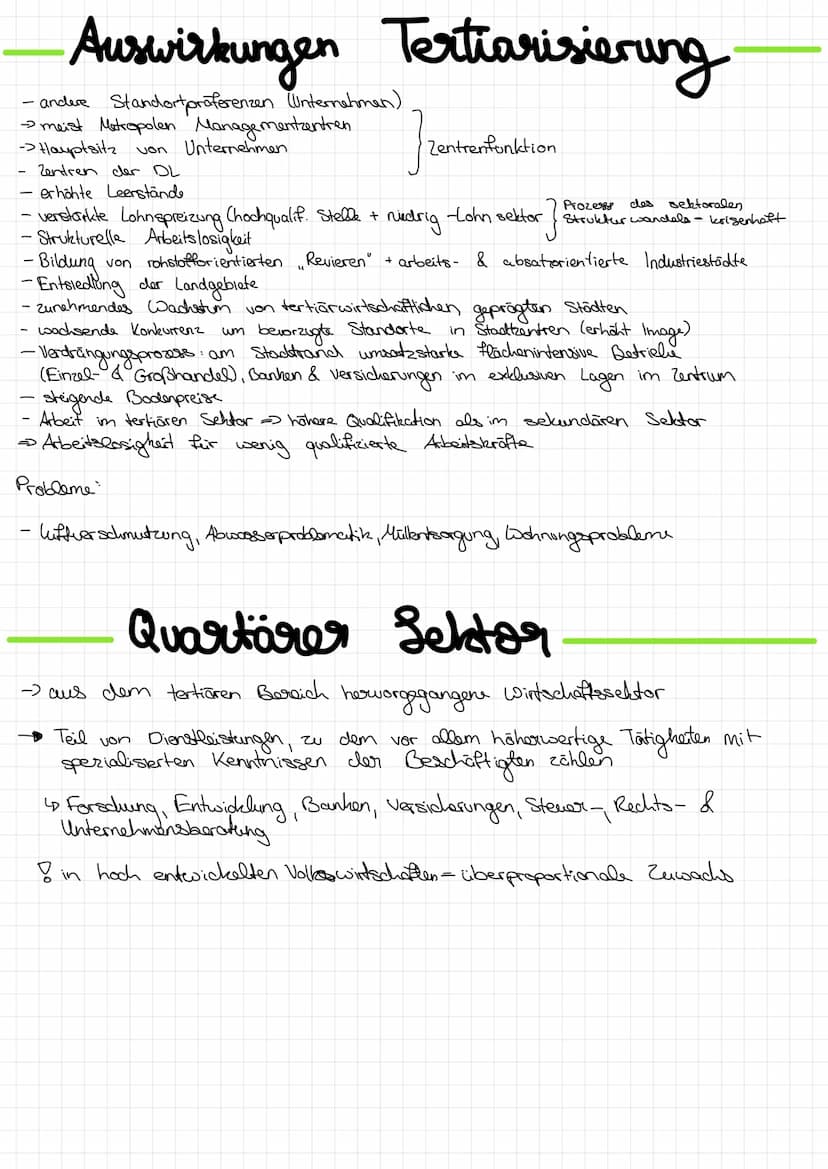 Auswirkungen Tertiarisierung
- andere Standortpräferenzen (Unternehmen)
-> meist Metropolen Managementzentren
-> Hauptsitz von Unternehmen
} Zentrenfunktion
- Zentren der DL
- erhöhte Leerstände
- verstärkte Lohnspreizung (hochqualif. Stelle + niedrig-Lohn sektor
} Prozess des sektoralen
Strukturwandels - krisenhaft
- Strukturelle Arbeitslosigkeit
- Bildung von rohstofforientierten „Revieren" + arbeits- & absatzorientierte Industriestädte
- Entsiedlung der Landgebiete
- zunehmendes Wachstum von tertiärwirtschaftlichen geprägten Städten
- wachsende Konkurrenz um bevorzugte Standorte in Stadtzentren (erhöht Image)
- Verdrängungsprozess: am Stadtrand umsatzstarke flächenintensive Betriebe
(Einzel- & Großhandel), Banken & Versicherungen im exklusiven Lagen im Zentrum
- steigende Bodenpreise
- Arbeit im tertiären Sektor => höhere Qualifikation als im sekundären Sektor
=> Arbeitslosigkeit für wenig qualifizierte Arbeitskräfte
Probleme:
- Luftverschmutzung, Abwasserproblematik, Müllentsorgung, Wohnungsprobleme
Quartärer Sektor
-> aus dem tertiären Bereich hervorgegangene Wirtschaftssektor
-> Teil von Dienstleistungen, zu dem vor allem höherwertige Tätigkeiten mit
spezialisierten Kenntnissen der Beschäftigten zählen
↳ Forschung, Entwicklung, Banken, Versicherungen, Steuer-, Rechts- &
Unternehmensberatung
! in hoch entwickelten Volkswirtschaften = überproportionale Zuwachs